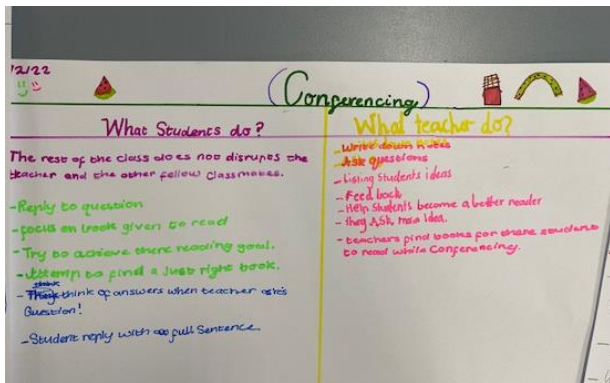 12/22
(Conferencing)
What Students do?
The rest of the class does not disrupts the
teacher and the other fellow classmates.
-Reply to question
-focus on book given to read
-Try to achieve there reading goal.
-Attemp to find a Just right book.
-think of answers when teacher ask's
Question!
-Student reply with full Sentence.
What teacher do?
-Write down notes
-Ask questions
-Listing students ideas
-Feed back
-Help students become a better reader
-they ASk main Idea.
-teachers find books for there students
to read while Conferencing.